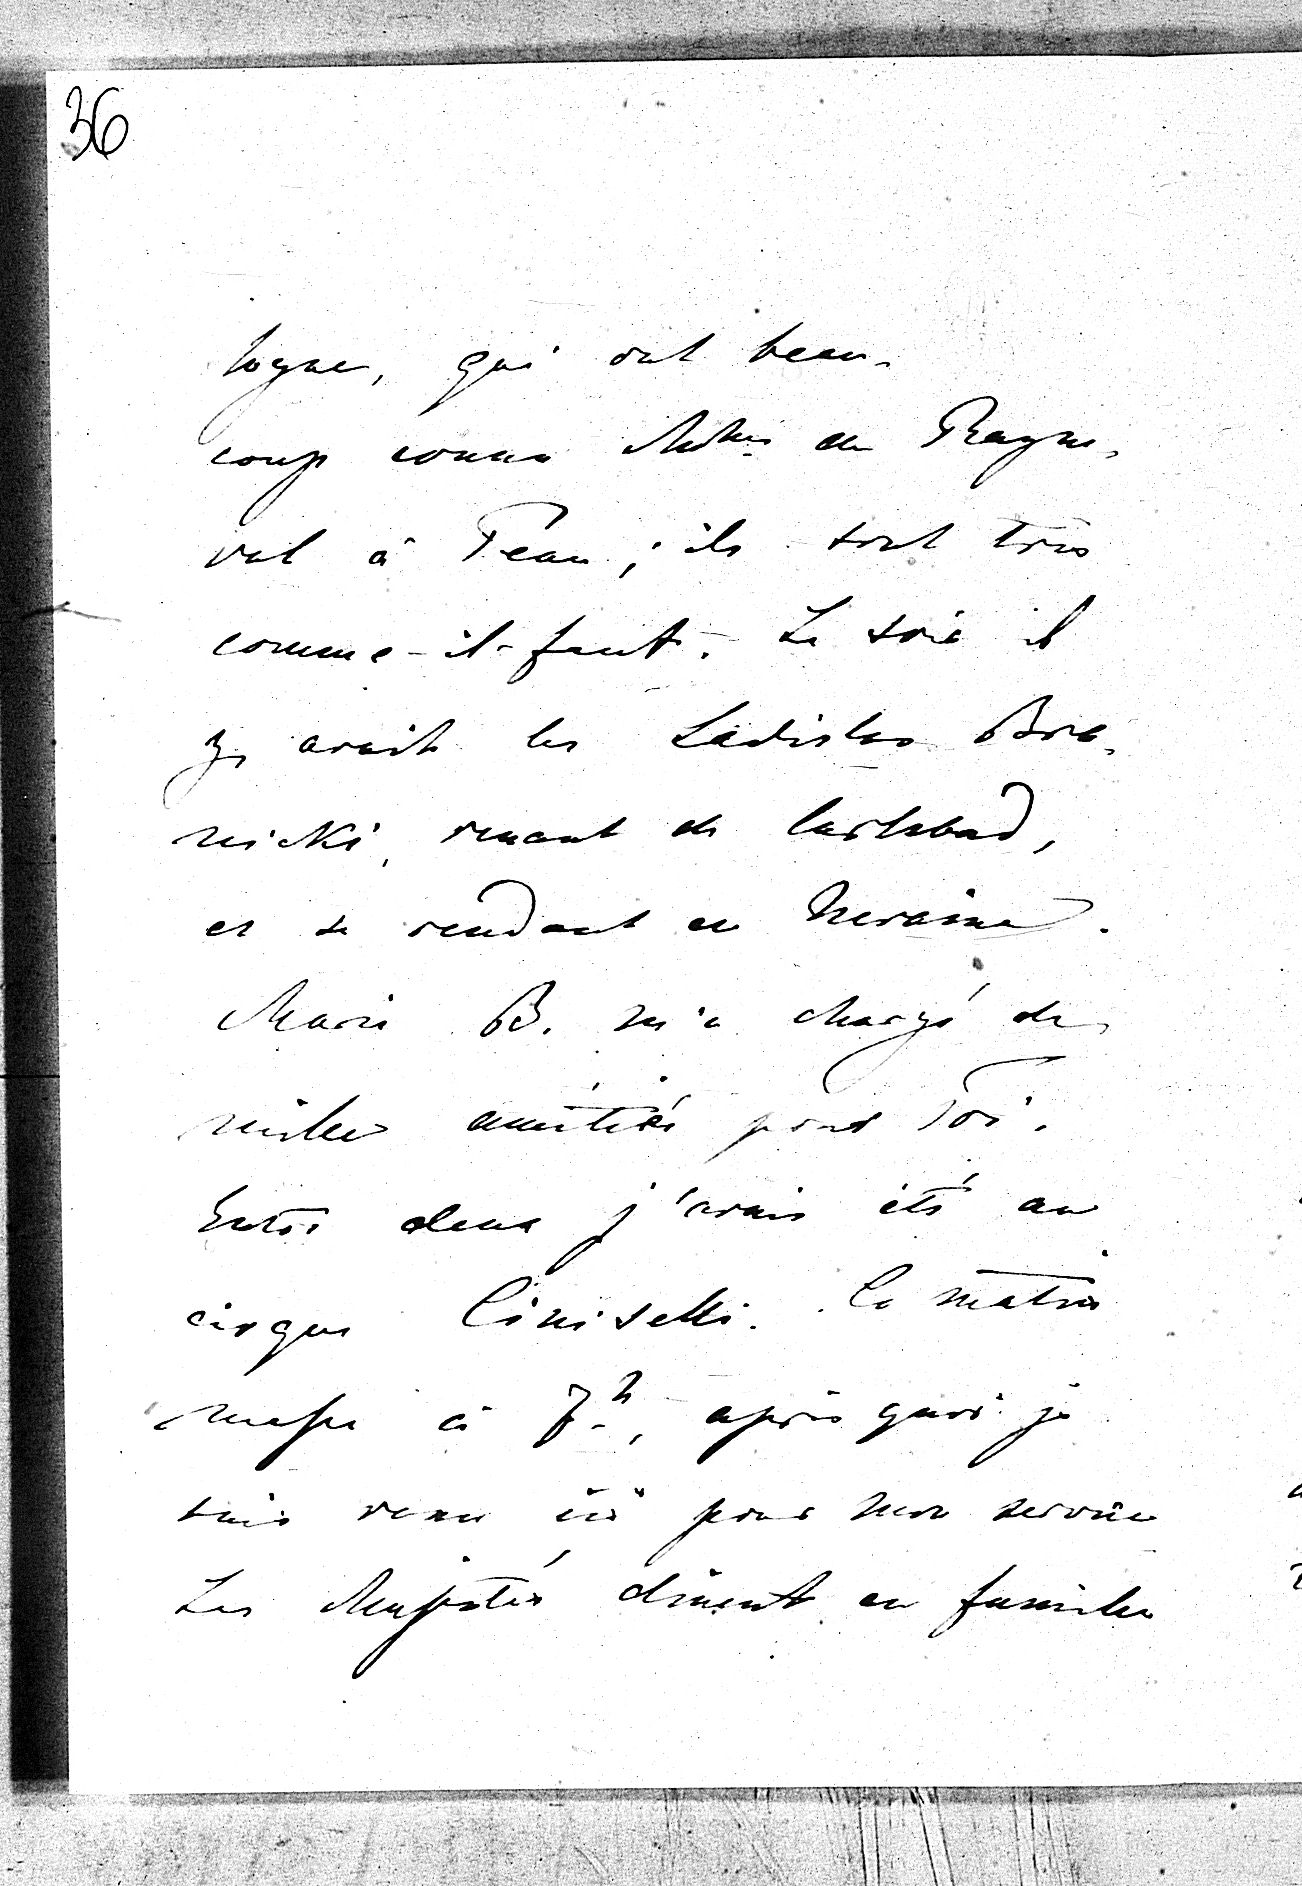 36
logne, qui ont beau-
coup connu Mmes de Rayne-
val à Pau; ils sont très
comme-il-faut. Le soir il
y avait les Ladislas Bra-
nicki, venant de Carlsbad,
et se rendant en Ukraine.
Marie B. m'a chargé de
mille amitiés pour Toi.
Entre deux j'avais été au
cirque Ciniselli. Ce matin
messe à 7h, après quoi je
suis venu ici pour mon service
Les Majestés dinent en famille